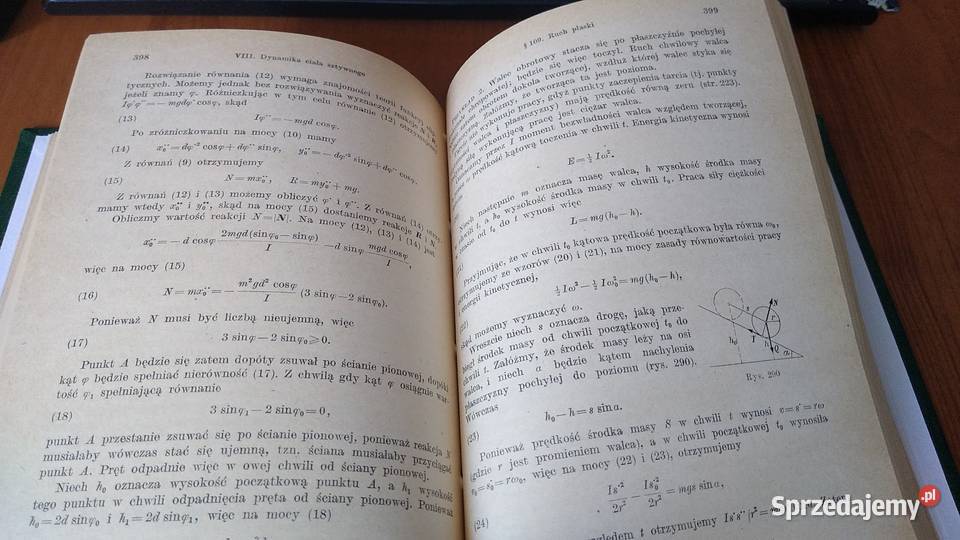 398 VIII. Dynamika ciała sztywnego
Rozwiązanie równania (12) wymaga znajomości teorii funkcji
tycznych. Możemy jednak bez rozwiązywania wyznaczyć reakcje
jeżeli znamy φ. Różniczkując w tym celu równanie (12) otrzymujemy
Iφ˙φ¨=−mgdφ˙cosφ, skąd
(13) Iφ¨=−mgd cosφ.
Po zróżniczkowaniu na mocy (10) mamy
(14) x₀¨=dφ˙² cosφ+dφ¨ sinφ, y₀¨=−dφ˙² sinφ+dφ¨ cosφ.
Z równań (9) otrzymujemy
(15) N=mx₀¨, R=my₀¨+mg.
Z równań (12) i (13) możemy obliczyć φ˙ i φ¨. Z równań (14)
mamy wtedy x₀¨ i y₀¨, skąd na mocy (15) dostaniemy reakcje R i N.
Obliczmy wartość reakcji N=|N|. Na mocy (12), (13) i (14) jest
x₀¨=−d cosφ 2mgd(sinφ₀−sinφ)/I −d sinφ mgd cosφ/I,
więc na mocy (15)
(16) N=mx₀¨=− m²gd² cosφ/I (3 sinφ−2 sinφ₀).
Ponieważ N musi być liczbą nieujemną, więc
(17) 3 sinφ−2 sinφ₀⩾0.
Punkt A będzie się zatem dopóty zsuwał po ścianie pionowej, dopóki
kąt φ będzie spełniać nierówność (17). Z chwilą gdy kąt φ osiągnie war-
tość φ₁ spełniającą równanie
(18) 3 sinφ₁−2 sinφ₀=0,
punkt A przestanie zsuwać się po ścianie pionowej, ponieważ reakcja N
musiałaby wówczas stać się ujemną, tzn. ściana musiałaby przyciągać
punkt A. Pręt odpadnie więc w owej chwili od ściany pionowej.
Niech h₀ oznacza wysokość początkową punktu A, a h₁ wysokość
tego punktu w chwili odpadnięcia pręta od ściany pionowej. Ponieważ
h₀=2d sinφ₀ i h₁=2d sinφ₁, więc na mocy (18)
§ 169. Ruch płaski 399
2. Walec obrotowy stacza się po płaszczyźnie pochyłej
chropowatej; będzie się więc toczył. Ruch chwilowy walca
obrotem dokoła tworzącej, wzdłuż której walec styka się
Załóżmy, że tworząca ta jest pozioma.
nie wykonuje pracy, gdyż punkty zaczepienia tarcia (tj. punkty
walca i płaszczyzny) mają prędkość równą zeru (str. 223).
wykonującą pracę jest ciężar walca.
przez I moment bezwładności walca względem tworzącej,
ω prędkość kątową toczenia w chwili t. Energia kinetyczna wynosi
E=½ Iω².
Niech następnie m oznacza masę walca, h wysokość środka masy
t, a h₀ wysokość środka masy w chwili t₀. Praca siły ciężkości
od t₀ do t wynosi więc
L=mg(h₀−h).
Przyjmując, że w chwili t₀ kątowa prędkość początkowa była równa ω₀,
otrzymujemy ze wzorów (20) i (21), na mocy zasady równowartości pracy
i energii kinetycznej,
½ Iω²−½ Iω₀²=mg(h₀−h),
skąd możemy wyznaczyć ω.
Wreszcie niech s oznacza drogę, jaką prze-
biegł środek masy od chwili początkowej t₀ do
chwili t. Załóżmy, że środek masy leży na osi
walca, i niech α będzie kątem nachylenia
płaszczyzny pochyłej do poziomu (rys. 290).
Wówczas
N
r
T
h₀
h
Q
α
Rys. 290
(23) h₀−h=s sinα.
Ponieważ prędkość środka masy S w chwili t wynosi v=s˙=rω
(gdzie r jest promieniem walca), a w chwili początkowej t₀ wynosiła
v₀=s₀˙=rω₀, więc na mocy (22) i (23), otrzymujemy
(24) Is˙²/2r² − Is₀˙²/2r² = mgs sinα,
względem t otrzymujemy Is˙s¨/r²=
Sprzedajemy.pl